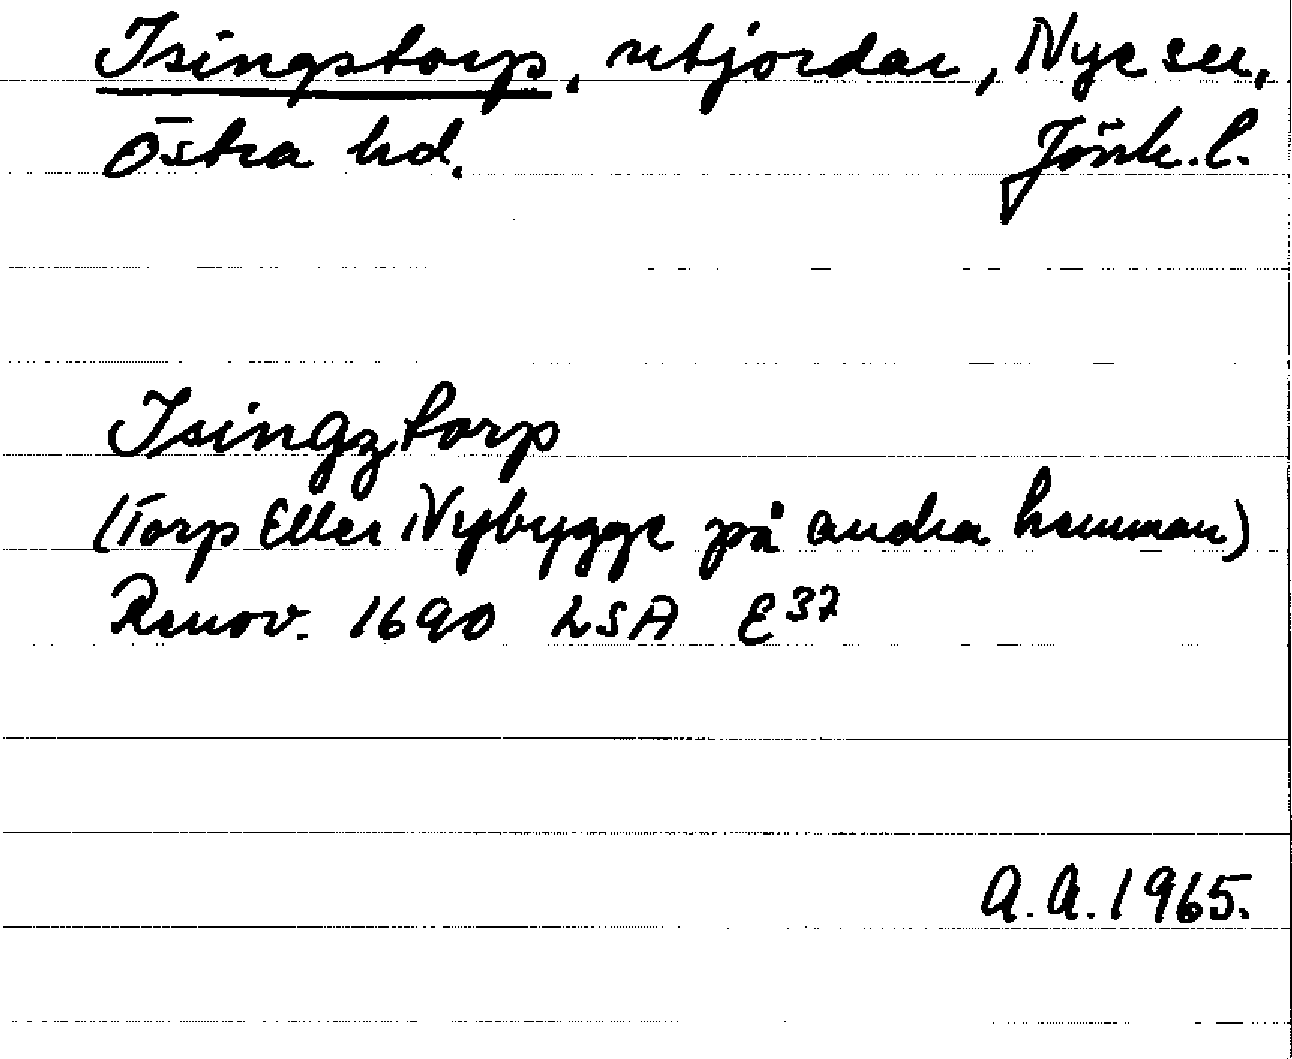 Isingstorp, utjordar, Nye sn,
Östra hd. Jönk. l.
Isingztorp
(Torp Eller Nybygge på andra hemman)
Renov. 1690 LSA E³⁷
A.A. 1965.